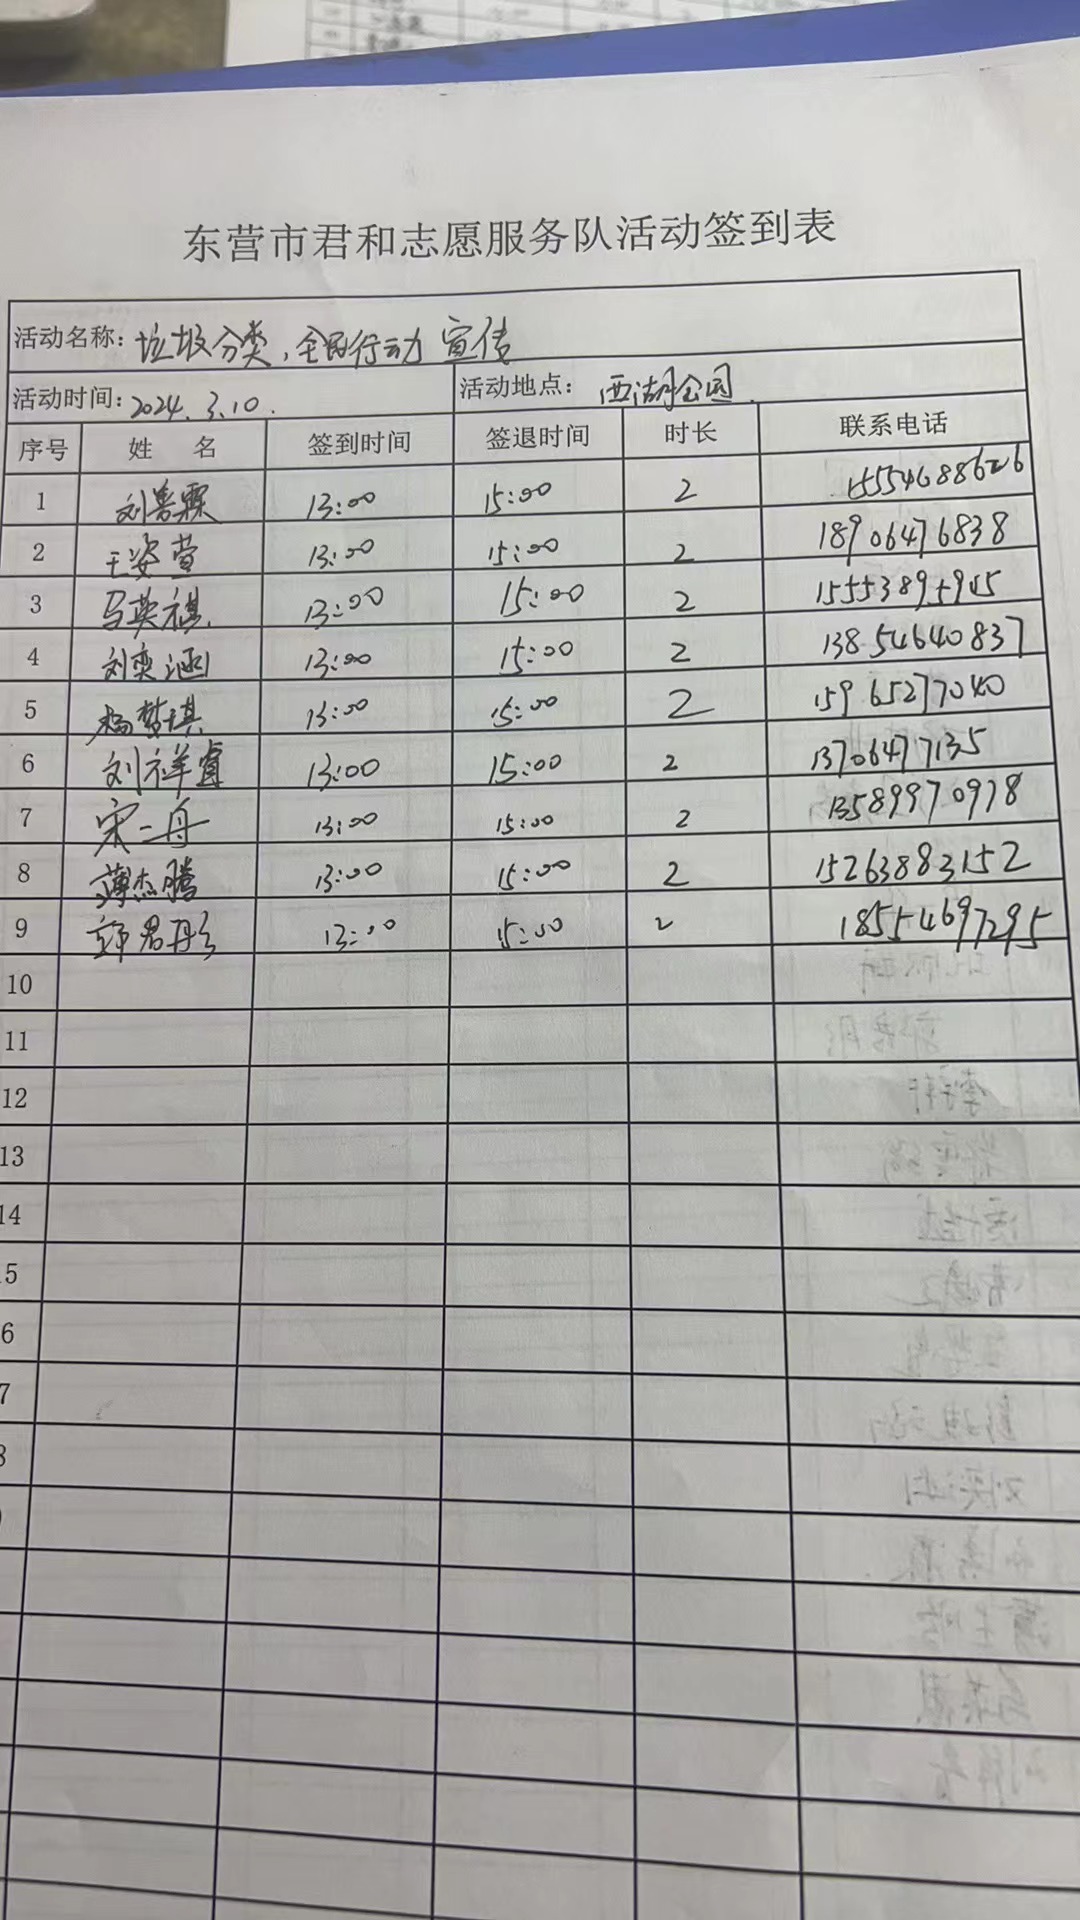 东营市君和志愿服务队活动签到表
活动名称：垃圾分类，全民行动 宣传
活动时间：2024.3.10. 活动地点：西湖公园
序号 姓 名 签到时间 签退时间 时长 联系电话
1 刘善霖 13:00 15:00 2 15554688626
2 王姿萱 13:00 15:00 2 18906476838
3 马英祺 13:00 15:00 2 15553895945
4 刘奕涵 13:00 15:00 2 13854640837
5 杨梦琪 13:00 15:00 2 15965277040
6 刘祥睿 13:00 15:00 2 13706477135
7 宋一舟 13:00 15:00 2 13589970978
8 薄杰腾 13:00 15:00 2 15263883152
9 郭君彤 13:00 15:00 2 18554697295
10
11
12
13
14